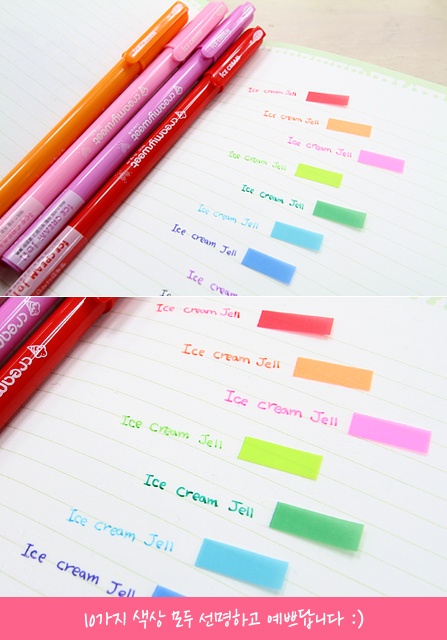 ice cream
creamymeet
creamymeet
creamymeet
ICE CREAM
Ice cream Jell
Ice cream Jell
Ice cream Jell
Ice cream Jell
Ice cream Jell
Ice cream Jell
Ice cream Jell
Ice cream
Ice cream Jell
Ice cream Jell
Ice cream Jell
Ice cream Jell
Ice cream Jell
Ice cream Jell
Ice cream Jell
10가지 색상 모두 선명하고 예쁘답니다 :)